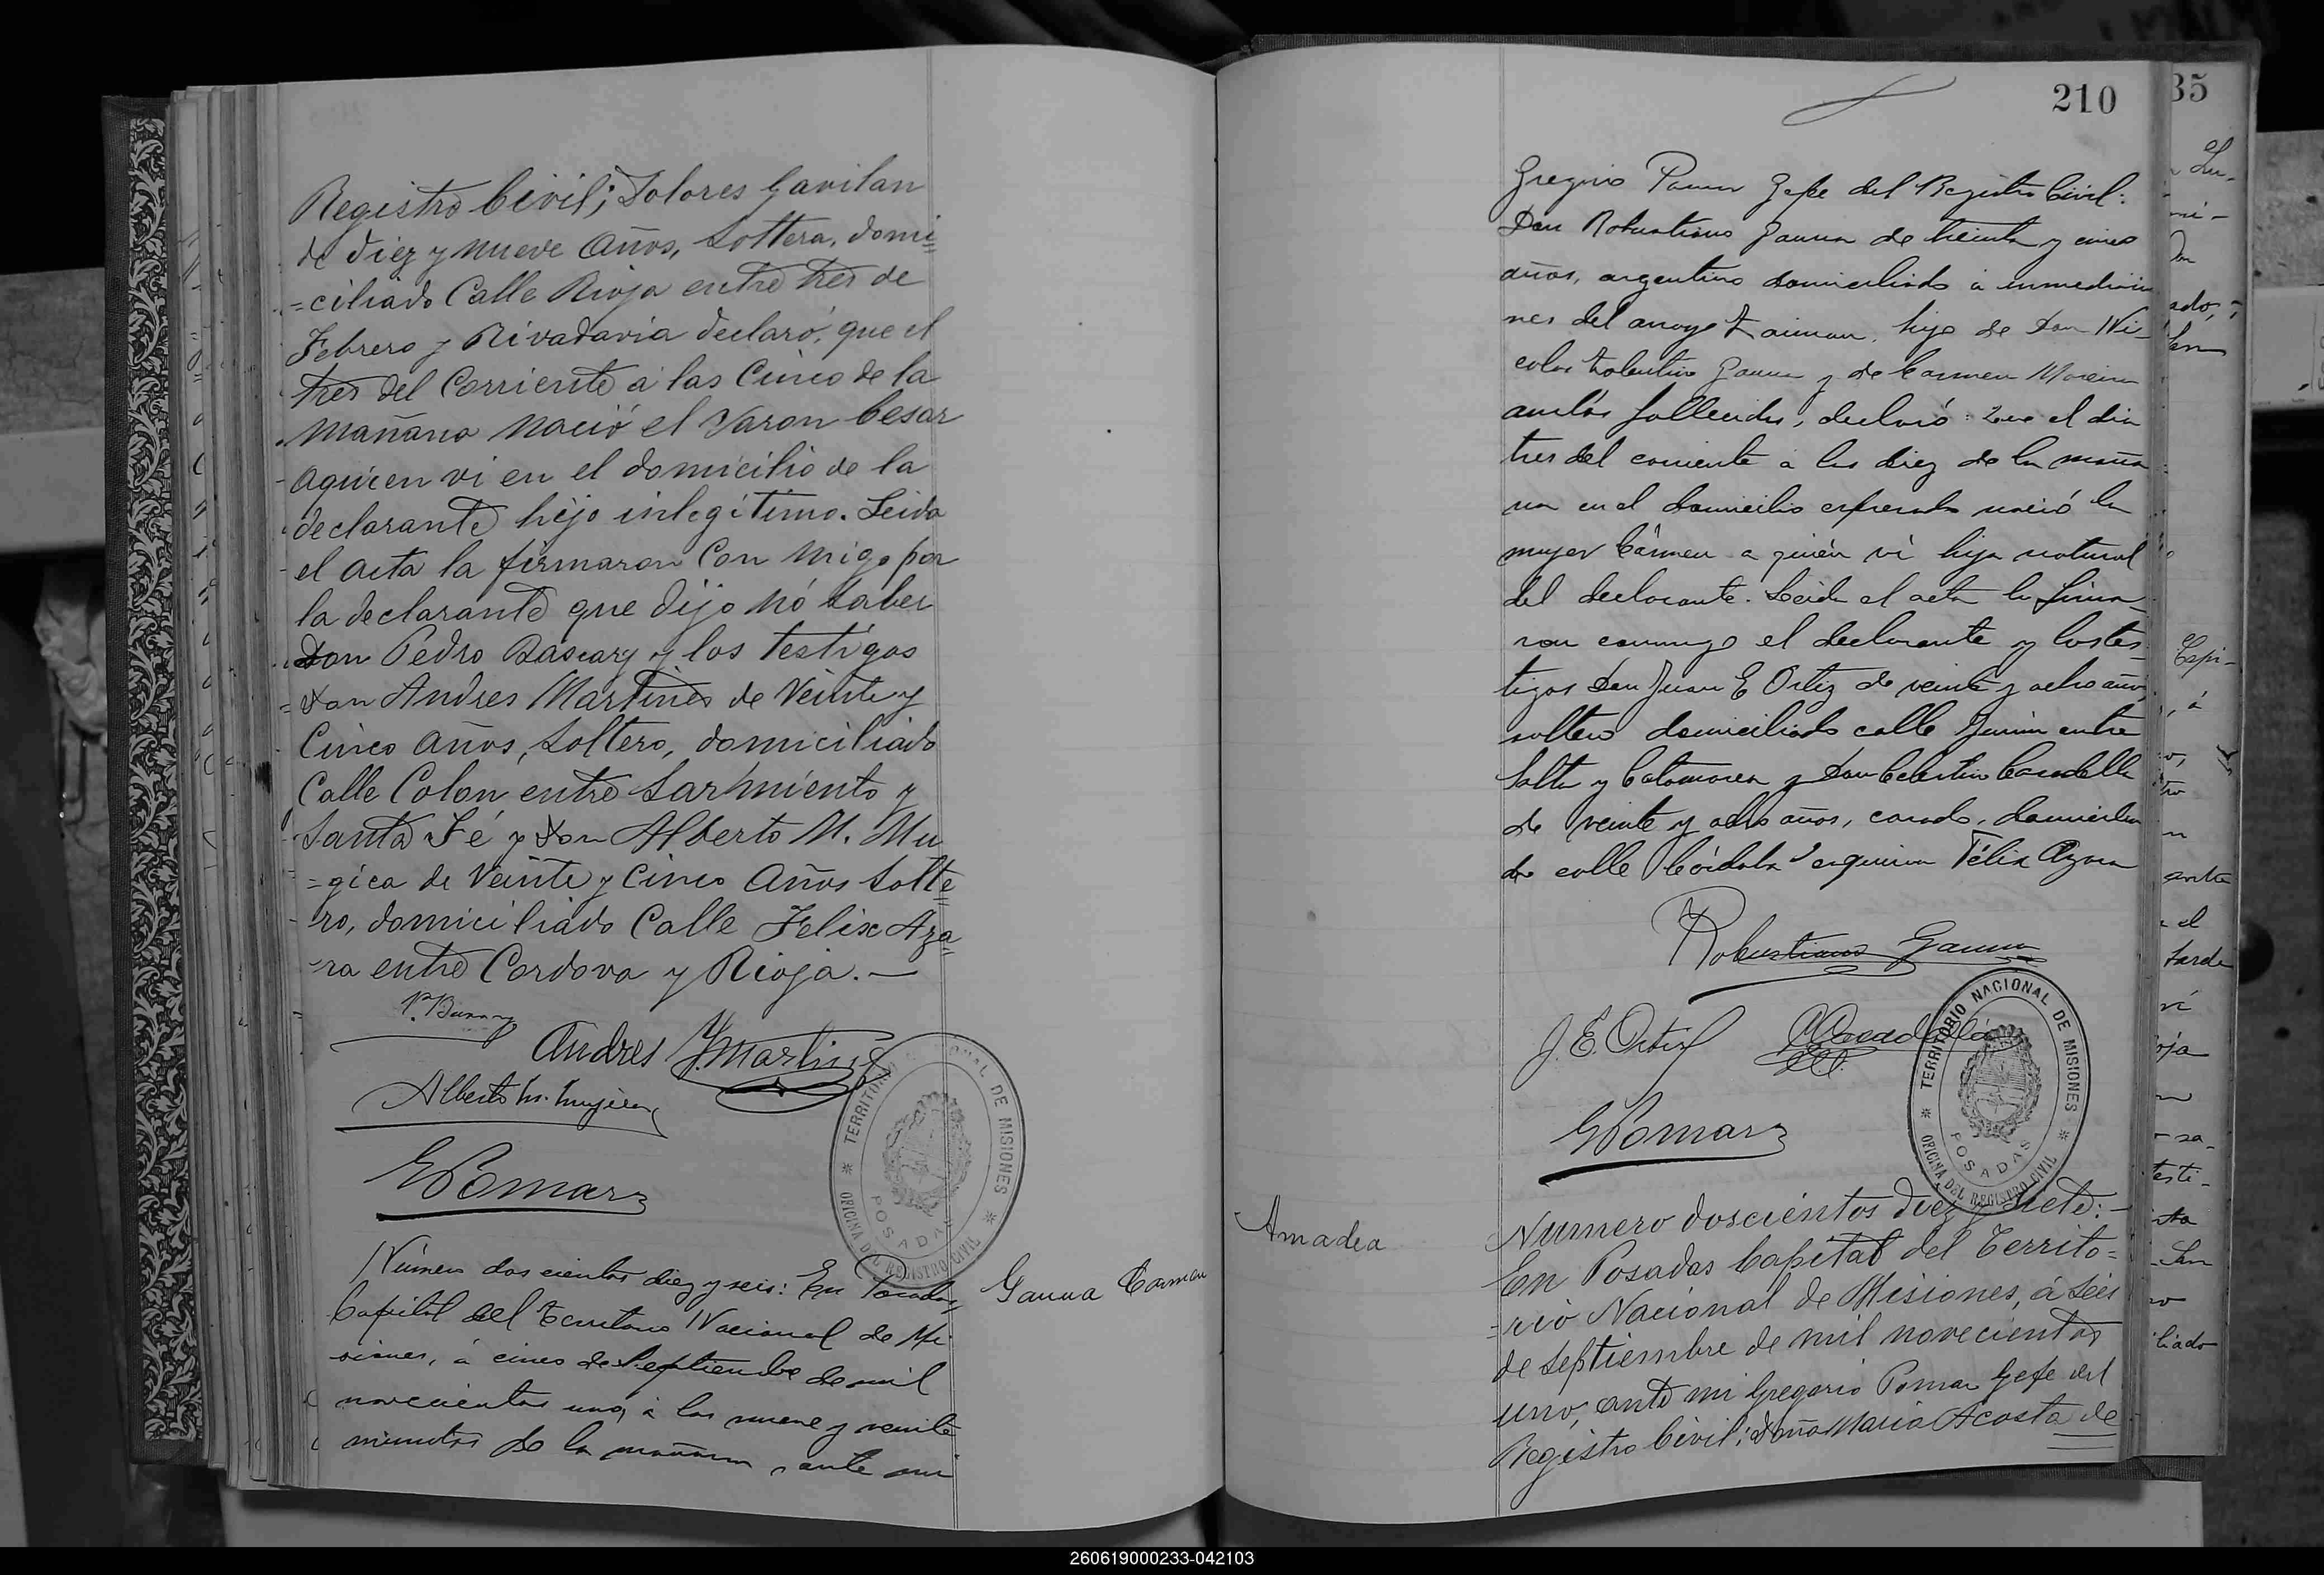 Registro Civil; Dolores Gavilan
de diez y nueve años, soltera, domi=
=ciliado Calle Rioja entre tres de
Febrero y Rivadavia declaró; que el
tres del Corriente á las Cinco de la
mañana nació el varon Cesar
aquien vi en el domicilio de la
declarante hijo inlegítimo. Leida
el acta la firmaron Con migo por
la declarante que dijo nó saber
Don Pedro Bascary y los testigos
Don Andres Martines de Veinte y
Cinco años, soltero, domiciliado
Calle Colon entre Sarmiento y
Santa Fé y Don Alberto M. Mu
=gica de Veinte y Cinco Años Solte=
ro, domiciliado Calle Felix Aza=
-ra entre Cordova y Rioja.—
Andres Martinez
Alberto M. Mujica
G Pomar
TERRITORIO NACIONAL DE MISIONES
POSADAS
OFICINA DEL REGISTRO CIVIL
Número doscientos diez y seis: En Posadas,
Capital del Territorio Nacional de Mi
siones, á cinco de Septiembre de mil
novecientos uno, á las nueve y veinte
minutos de la mañana, ante mi
Gauna Carmen
210
Gregorio Pomar Gefe del Registro Civil:
Don Robustiano Gauna de treinta y cinco
años, argentino domiciliado á inmediacio
nes del arroyo Zaiman, hijo de Don Ni-
colas Tolentino Gauna y de Carmen Moreira
ambos fallecidos, declaró: Que el dia
tres del corriente á las diez de la maña
na en el domicilio espresado nació la
mujer Cármen a quién ví hija natural
del declarante. Leida el acta la firma-
ron conmigo el declarante y los tes-
tigos Don Juan E Ortiz de veinte y ocho años,
soltero domiciliado calle Junin entre
Salta y Catamarca y Don Celestino
de veinte y ocho años, casado, domicilia
do calle Córdoba esquina Félix Azara
Robustiano Gauna
J. E. Ortiz
G Pomar
TERRITORIO NACIONAL DE MISIONES
POSADAS
OFICINA DEL REGISTRO CIVIL
Amadea
Numero doscientos diez y siete:-
En Posadas Capital del Territo=
=rio Nacional de Misiones, á seis
de septiembre de mil novecientos
uno, ante mi Gregorio Pomar Gefe del
Registro Civil; doña Maria Acosta de
35
260619000233-042103